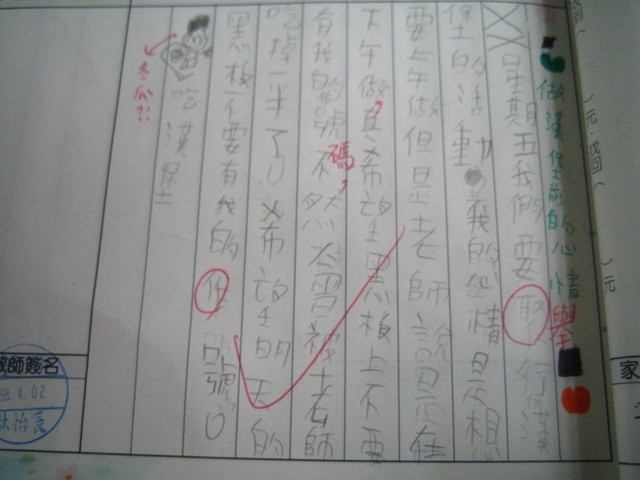 做漢堡前的心情
星期五我們要取行做漢
舉
堡的活動，我的心情是想
要上午做但是老師說是在
下午做，真希望黑板上不要
有我的號碼，不然會被老師
吃掉一半了。希望明天的
黑板不要有我的號。
吃漢堡
冬瓜?!
師簽名
98.4.02
元
家